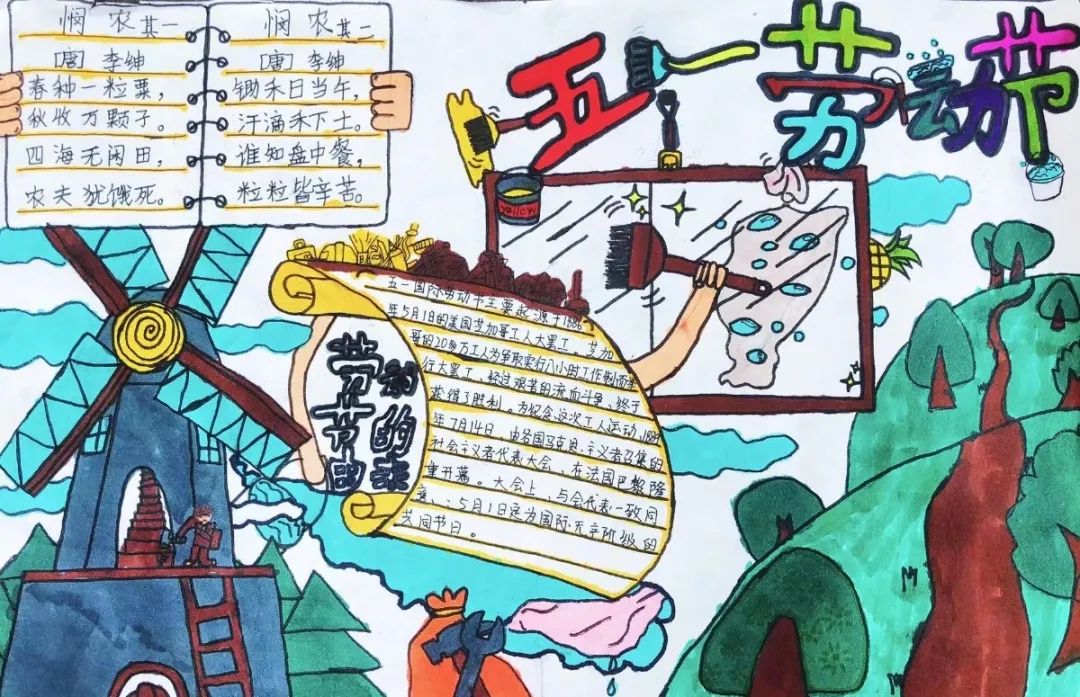 悯 农 其一
[唐] 李绅
春种一粒粟，
秋收万颗子。
四海无闲田，
农夫犹饿死。
悯 农 其二
[唐] 李绅
锄禾日当午，
汗滴禾下土。
谁知盘中餐，
粒粒皆辛苦。
五一劳动节
yellow
劳动节的由来
五一国际劳动节主要起源于1886
年5月1日的美国芝加哥工人大罢工。芝加
哥的20多万工人为争取实行八小时工作制而举
行大罢工，经过艰苦的流血斗争，终于
获得了胜利。为纪念这次工人运动，1889
年7月14日，由各国马克思主义者召集的
社会主义者代表大会，在法国巴黎隆
重开幕。大会上，与会代表一致同
意：5月1日定为国际无产阶级的
共同节日。